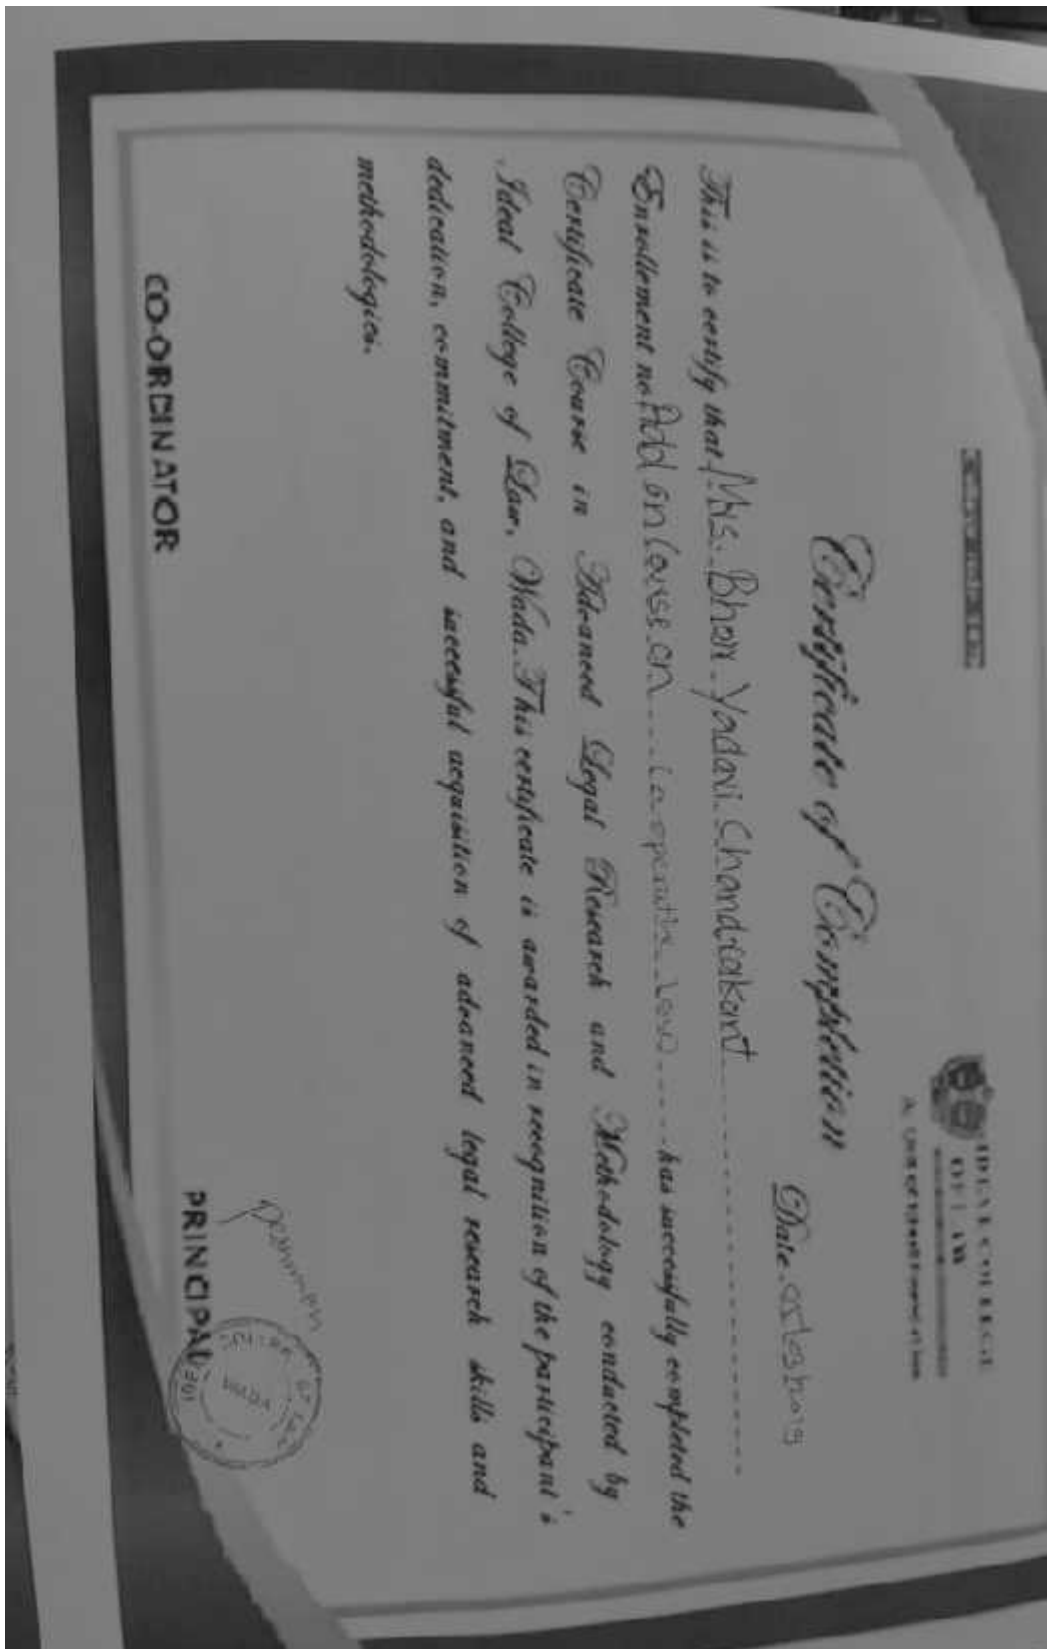 IDEAL COLLEGE
OF LAW
Certificate of Completion
Date
This is to certify that Mrs. Bhoir Yadavi Chandrakant
Enrollement no. Add on Course on Co-operative Law has successfully completed the
Certificate Course in Advanced Legal Research and Methodology conducted by
Ideal College of Law, Wada. This certificate is awarded in recognition of the participant's
dedication, commitment, and successful acquisition of advanced legal research skills and
methodologies.
CO-ORDINATOR
PRINCIPAL
WADA